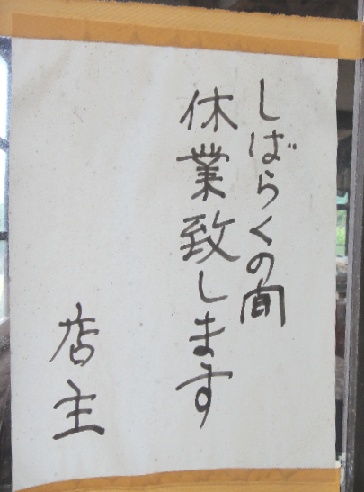 しばらくの間
休業致します
店主